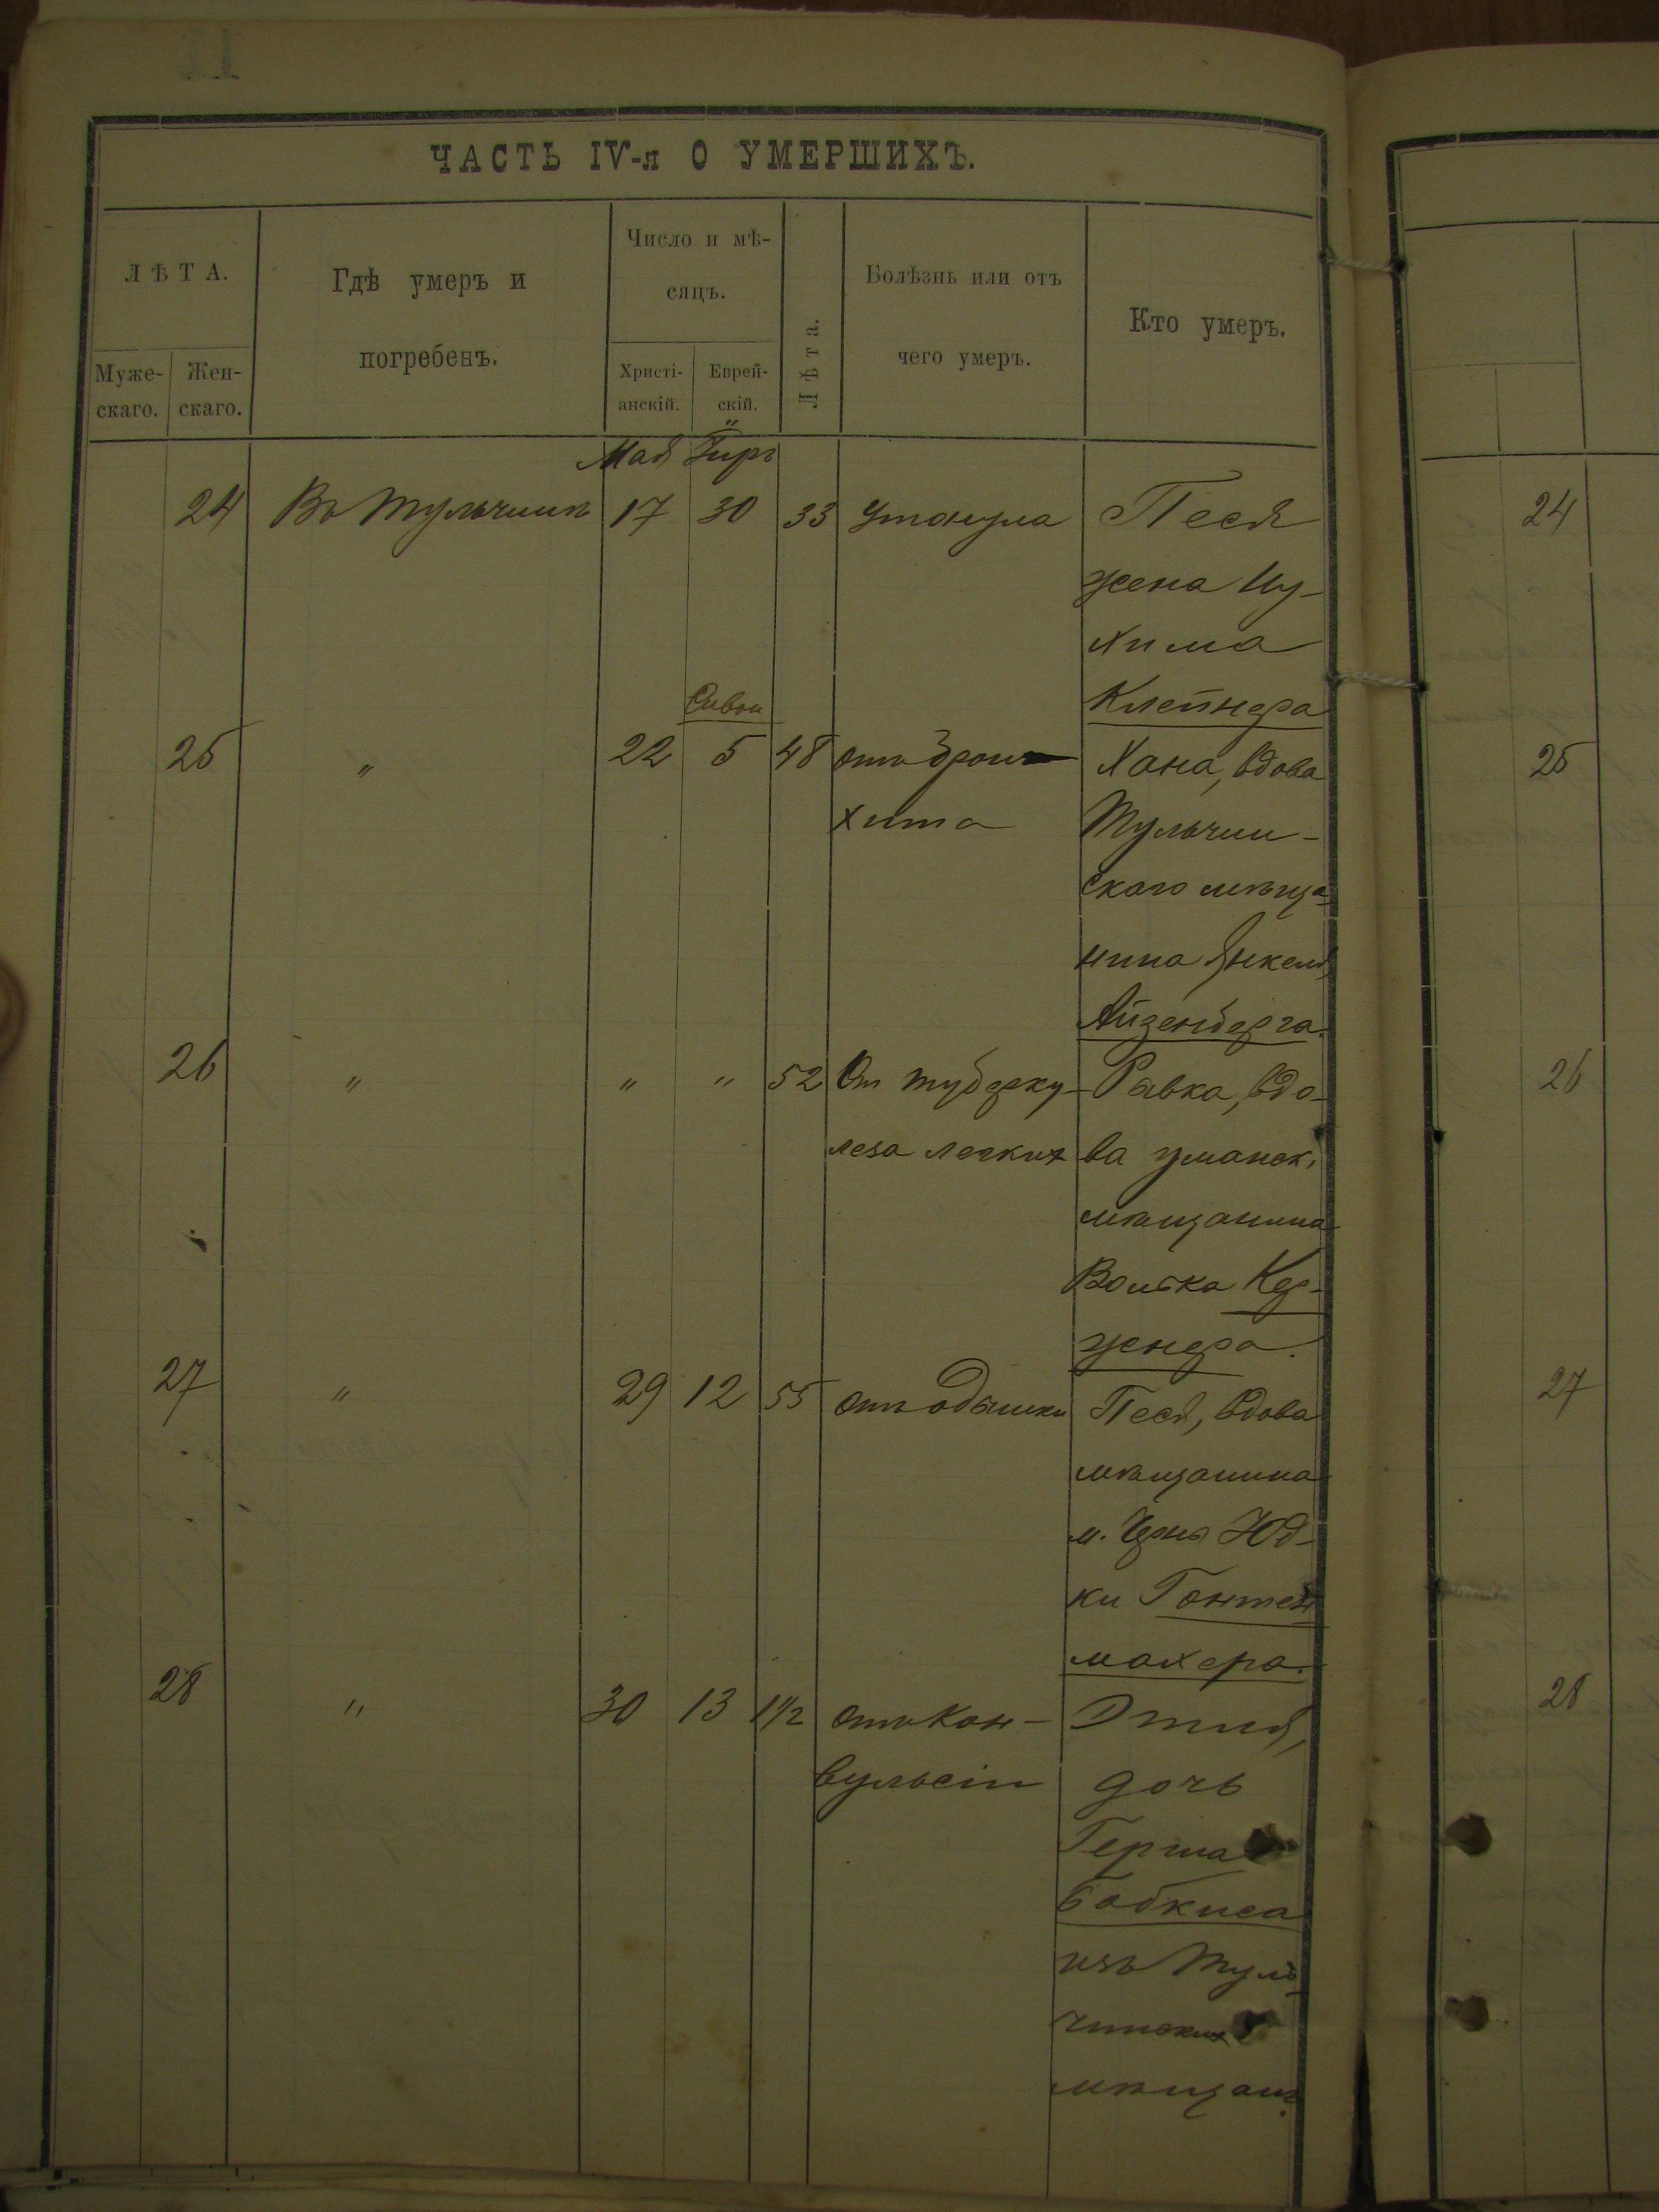 ЧАСТЬ IV-я О УМЕРШИХЪ.
ЛѢТА.
Муже-
скаго.
Жен-
скаго.
Гдѣ умеръ и
погребенъ.
Число и мѣ-
сяцъ.
Христі-
анскій.
Еврей-
скій.
Лѣта.
Болѣзнь или отъ
чего умеръ.
Кто умеръ.
Мая
24 Въ Тульчинѣ 17 30 33 утонула Песя
жена Ну-
хима
Клейнера
Сиван
25 " 22 5 48 отъ брон-
хита
Хана, вдова
Тульчин-
скаго мѣща-
нина Янкеля
Айзенберга.
26 " " " 52 От туберку-
леза легких
Рывка, вдо-
ва уманск.
мѣщанина
Волька Кер-
женера.
27 " 29 12 55 отъ одышки Песя, вдова
мѣщанина
м. Юд-
ки Гонтен
махера.
28 " 30 13 1 1/2 отъ кон-
вульсіи
Этля,
дочь
Герша
Бабкиса
изъ Туль
чинских
мѣщанъ.
24
25
26
27
28